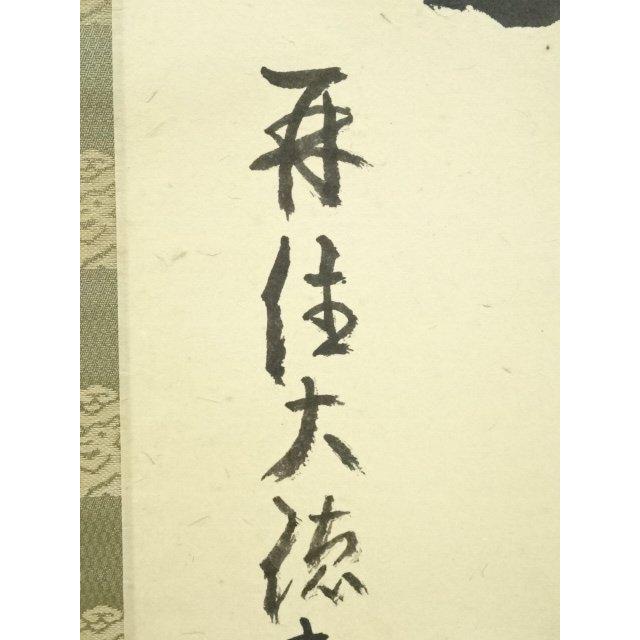 再住大徳